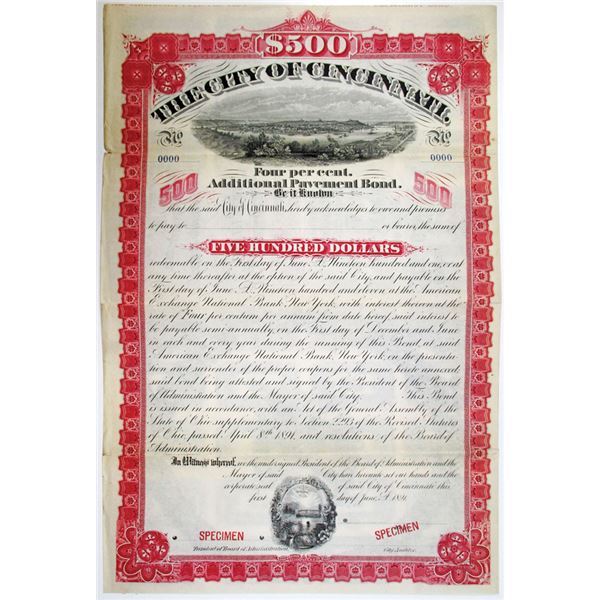 $500
THE CITY OF CINCINNATI.
No No
0000 0000
Four per cent.
500 Additional Pavement Bond. 500
Be it Known
that the said City of Cincinnati, hereby acknowledges to owe and promises
to pay to or bearer, the sum of
FIVE HUNDRED DOLLARS
redeemable on the First day of June, A. Nineteen hundred and one, or at
any time thereafter at the option of the said City, and payable on the
First day of June A. Nineteen hundred and eleven at the American
Exchange National Bank, New York, with interest thereon at the
rate of Four per centum per annum from date hereof said interest to
be payable semi-annually, on the First day of December and June
in each and every year during the running of this Bond, at said
American Exchange National Bank, New York, on the presenta-
tion and surrender of the proper coupons for the same hereto annexed
said bond being attested and signed by the President of the Board
of Administration and the Mayor of said City. This Bond
is issued in accordance with an Act of the General Assembly of the
State of Ohio supplementary to Section 2293 of the Revised Statutes
of Ohio passed April 8th 1891, and resolutions of the Board of
Administration.
In Witness whereof, we the undersigned President of the Board of Administration and the
Mayor of said City have hereunto set our hands and the
corporate seal of said City of Cincinnati this
first day of June, A. 1891
SPECIMEN SPECIMEN
President of Board of Administration. City Auditor.